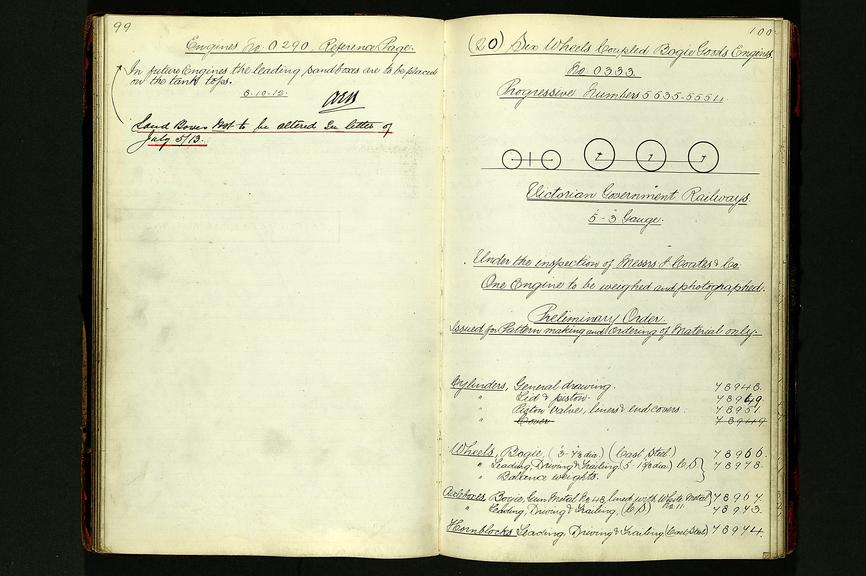 99
Engines No. 0290. Reference Page.
In future Engines the leading sandboxes are to be placed
on the tank tops.
8-10-12.
Sand Boxes Not to be altered In letter of
July 5/13.
100
(20) Six Wheels Coupled Bogie Goods Engines
No 0333
Progressive Numbers 5535-5554
Victorian Government Railways.
5-3 Gauge.
Under the inspection of Messrs J. Coates & Co.
One Engine to be weighed and photographed.
Preliminary Order.
Issued for Pattern making and Ordering of Material only.
Cylinders, General drawing. 78948.
" Lid & piston. 78949
" Piston valve, liners & end covers. 78951
" Cover 78949
Wheels, Bogie, (3-1/8 dia) (Cast Steel) 78966.
" Leading, Driving & Trailing (5-1/8 dia) C.S) 78978.
" Balance weights.
Axleboxes Bogie, Gun Metal No 48, lined with White Metal No 11 78967.
" Leading, Driving & Trailing, (C.S) 78943.
Hornblocks Leading, Driving & Trailing (Cast Steel) 78944.